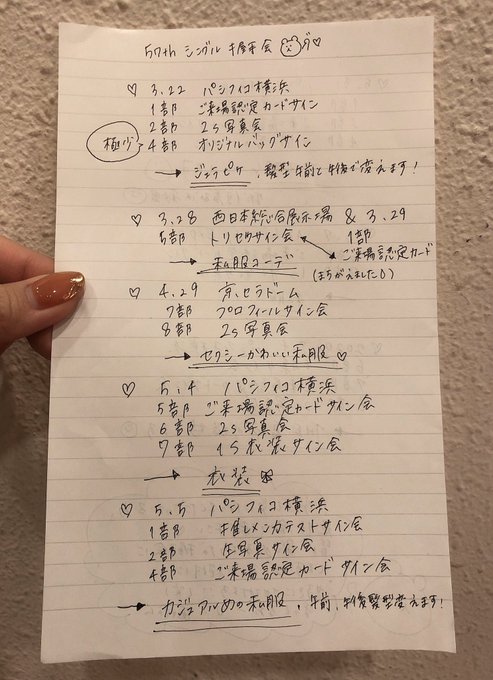 57th シングル 握手会
♡ 3.22 パシフィコ横浜
1部 ご来場認定カードサイン
2部 2s写真会
極少 4部 オリジナルバッグサイン
→ ジェラピケ、髪型午前と午後で変えます!
♡ 3.28 西日本総合展示場 & 3.29
5部 トリセツサイン会 1部
ご来場認定カード
→ 私服コーデ (まちがえました)
♡ 4.29 京セラドーム
7部 プロフィールサイン会
8部 2s写真会
→ セクシーかわいい私服 ♡
♡ 5.4 パシフィコ横浜
5部 ご来場認定カードサイン会
6部 2s写真会
7部 1s衣装サイン会
→ 衣装
♡ 5.5 パシフィコ横浜
1部 推しメンカテストサイン会
2部 生写真サイン会
4部 ご来場認定カードサイン会
→ カジュアルめの私服、午前、午後髪型変えます!